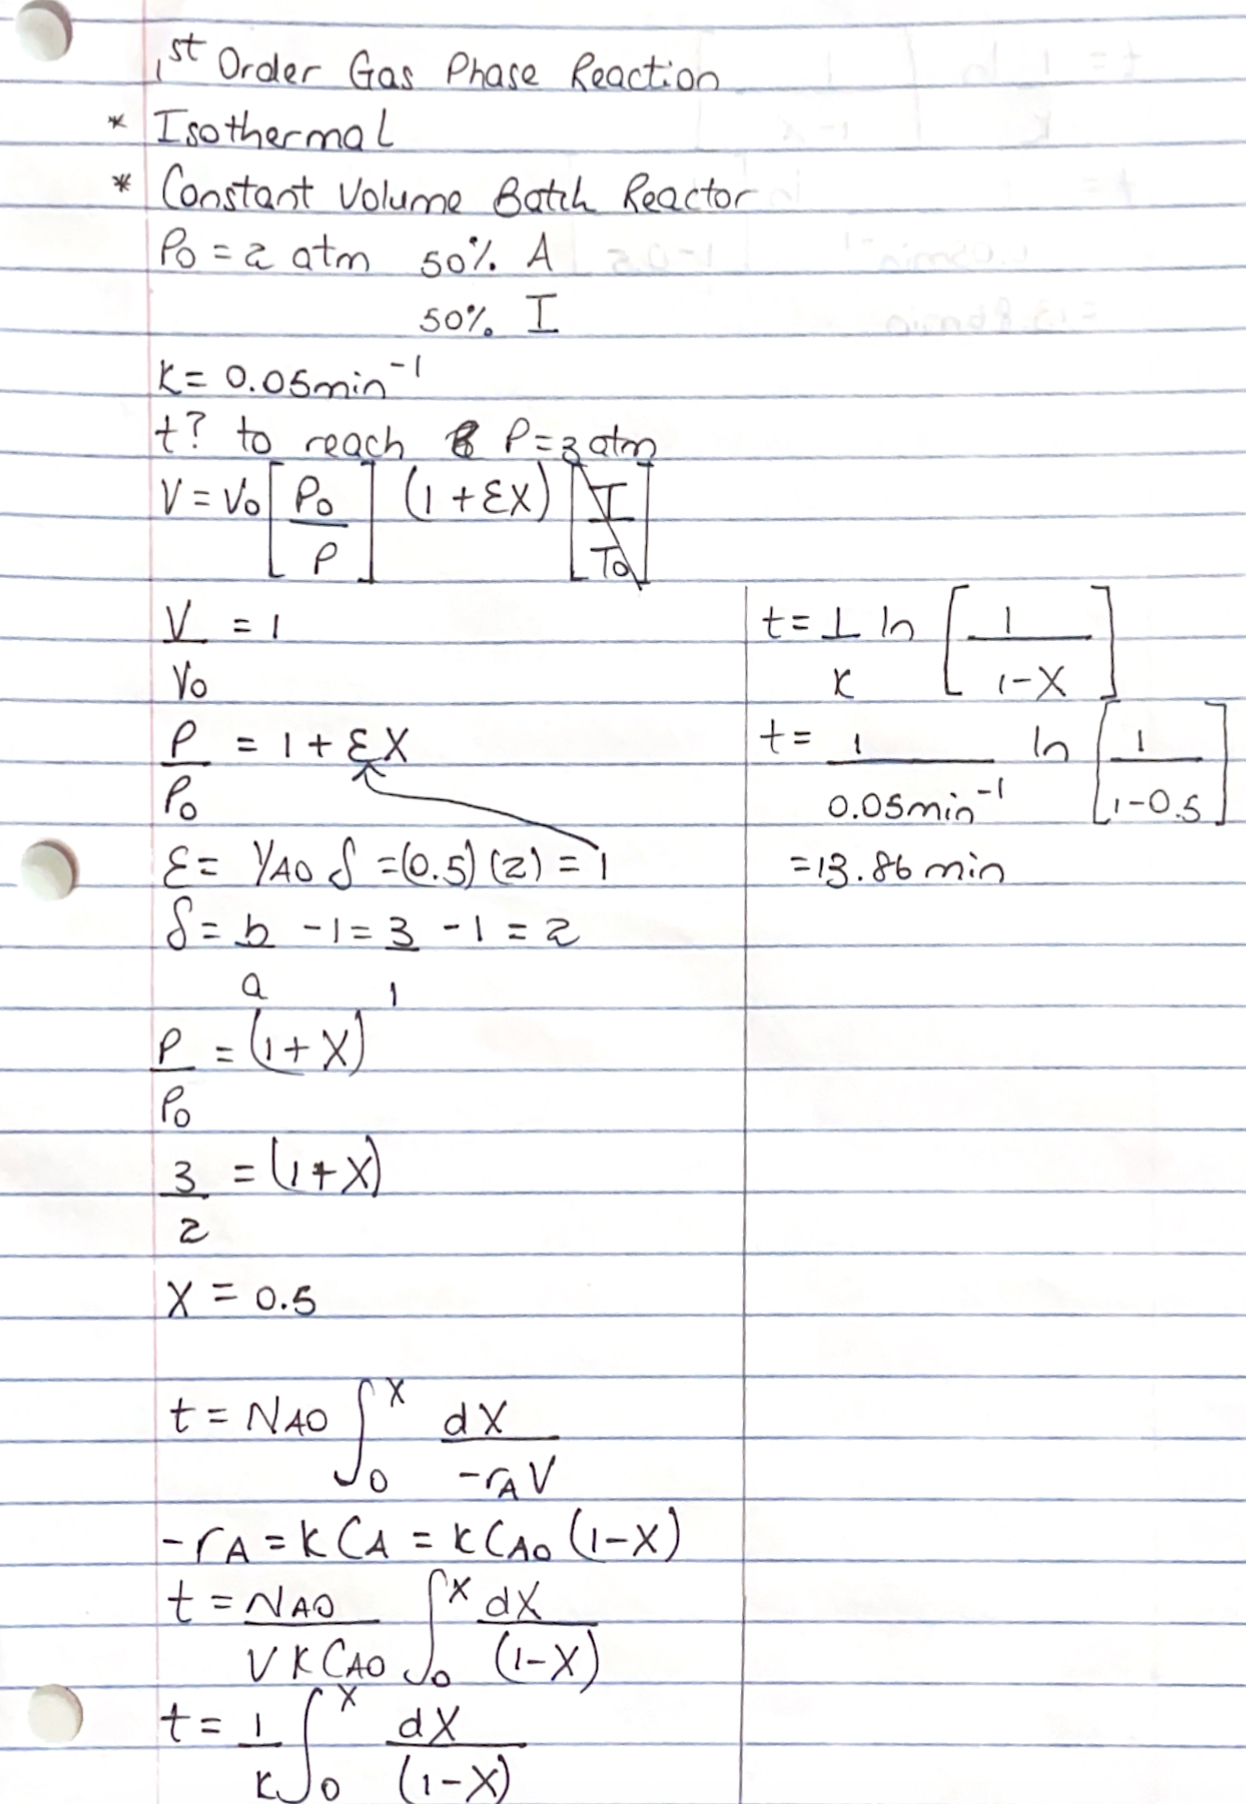 1st Order Gas Phase Reaction
* Isothermal
* Constant Volume Batch Reactor
P0 = 2 atm 50% A
50% I
K = 0.05min⁻¹
t? to reach P = 3 atm
V = V0 [P0/P] (1 + εX) [T/T0]
V/V0 = 1
P/P0 = 1 + εX
ε = YA0 δ = (0.5)(2) = 1
δ = b/a - 1 = 3/1 - 1 = 2
P/P0 = (1 + X)
3/2 = (1 + X)
X = 0.5
t = NA0 ∫0^X dX/(-rA V)
-rA = K CA = K CA0 (1-X)
t = NA0/(V K CA0) ∫0^X dX/(1-X)
t = 1/K ∫0^X dX/(1-X)
t = 1/K ln [1/(1-X)]
t = 1/(0.05min⁻¹) ln [1/(1-0.5)]
= 13.86 min